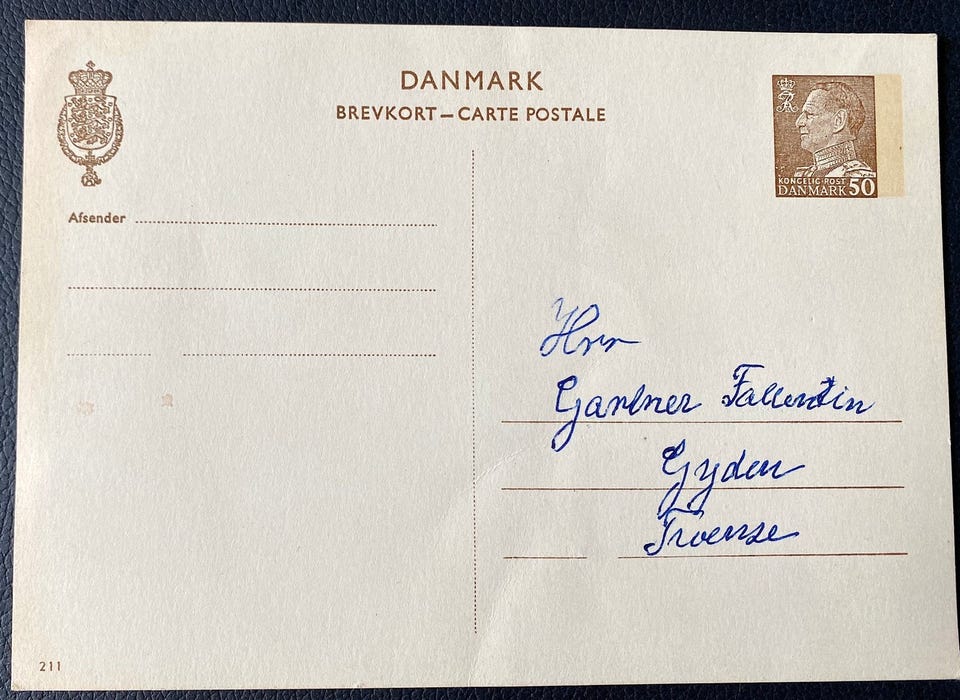 DANMARK
BREVKORT – CARTE POSTALE
KONGELIG POST
DANMARK 50
Afsender
Hrr
Gartner Fallentin
Gyden
Troense
211